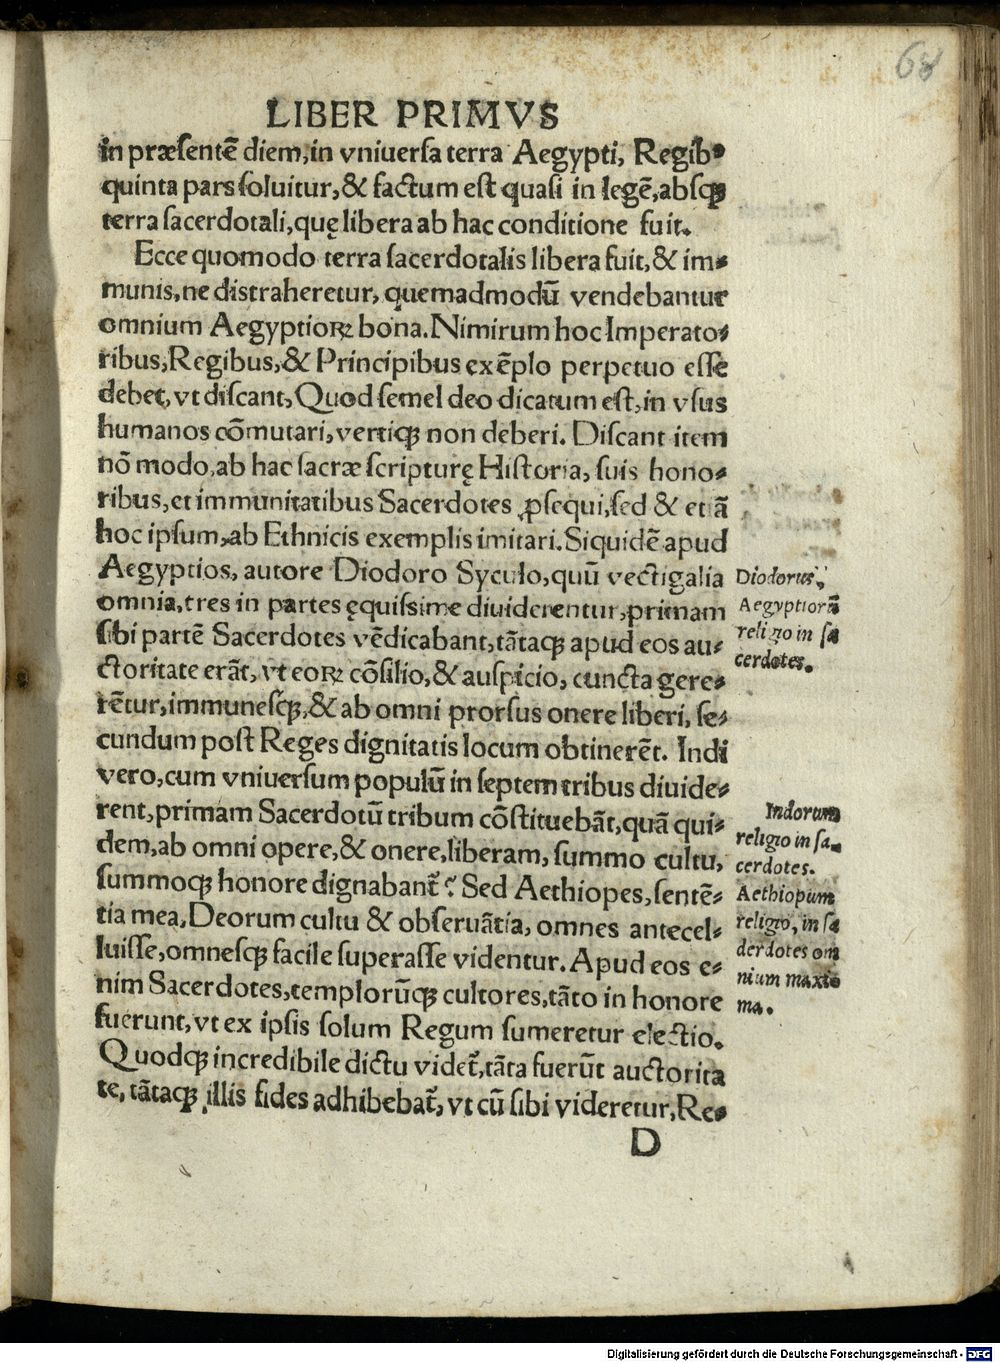 68
LIBER PRIMVS
in præsentē diem, in vniuersa terra Aegypti, Regibꝰ
quinta pars soluitur, & factum est quasi in legē, absqꝫ
terra sacerdotali, quę libera ab hac conditione fuit.
Ecce quomodo terra sacerdotalis libera fuit, & im⸗
munis, ne distraheretur, quemadmodū vendebantur
omnium Aegyptioꝝ bona. Nimirum hoc Imperato⸗
ribus, Regibus, & Principibus exēplo perpetuo esse
debet, vt discant, Quod semel deo dicatum est, in vsus
humanos cōmutari, vertiqꝫ non deberi. Discant item
nō modo, ab hac sacræ scripturę Historia, suis hono⸗
ribus, et immunitatibus Sacerdotes ꝓsequi, sed & et ā
hoc ipsum, ab Ethnicis exemplis imitari. Siquidē apud
Aegyptios, autore Diodoro Syculo, quū vectigalia
omnia, tres in partes ęquissime diuiderentur, primam
sibi partē Sacerdotes vēdicabant, tātaqꝫ apud eos au⸗
ctoritate erāt, vt eoꝝ cōsilio, & auspicio, cuncta gere⸗
rētur, immunesqꝫ, & ab omni prorsus onere liberi, se⸗
cundum post Reges dignitatis locum obtinerēt. Indi
vero, cum vniuersum populū in septem tribus diuide⸗
rent, primam Sacerdotū tribum cōstituebāt, quā qui⸗
dem, ab omni opere, & onere, liberam, summo cultu,
summoqꝫ honore dignabant᷑? Sed Aethiopes, sentē⸗
tia mea, Deorum cultu & obseruātia, omnes antecel⸗
luisse, omnesqꝫ facile superasse videntur. Apud eos e⸗
nim Sacerdotes, templorūqꝫ cultores, tāto in honore
fuerunt, vt ex ipsis solum Regum sumeretur electio.
Quodqꝫ incredibile dictu videt᷑, tāta fuerūt auctorita
te, tātaqꝫ illis fides adhibebat᷑, vt cū sibi videretur, Re⸗
D
Diodorus,
Aegyptiorū
religio in sa
cerdotes.
Indorum
religio in sa⸗
cerdotes.
Aethiopum
religio, in sa
derdotes om
nium maxi⸗
ma.
Digitalisierung gefördert durch die Deutsche Forschungsgemeinschaft - DFG